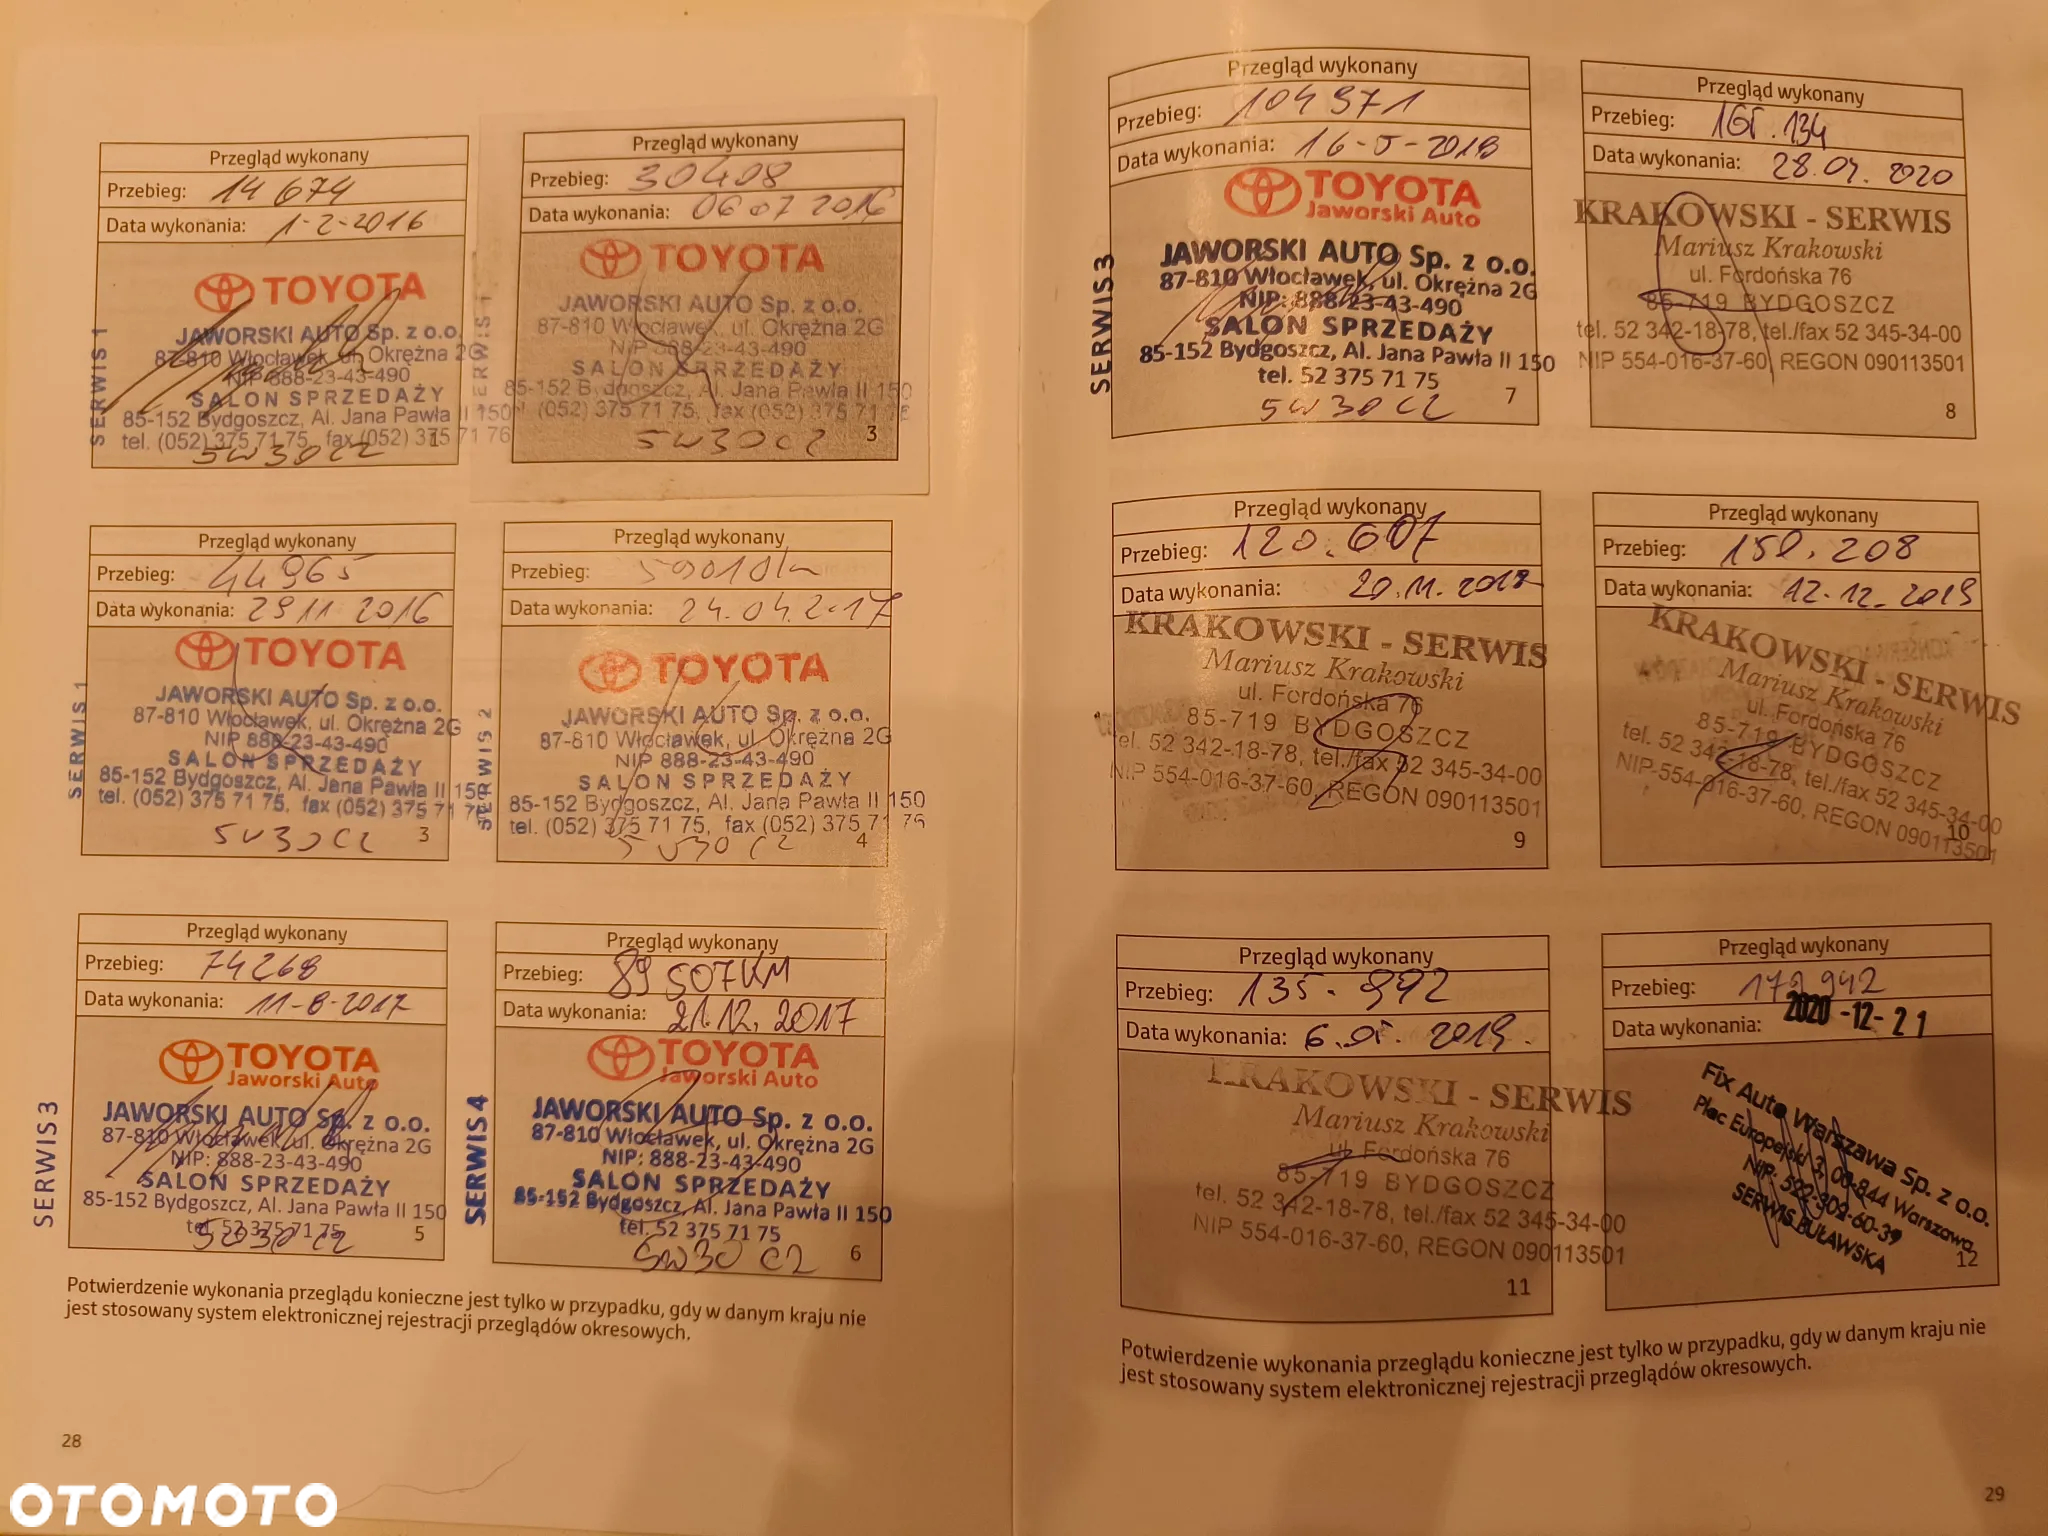 Przegląd wykonany
Przebieg: 14 674
Data wykonania: 1-2-2016
TOYOTA
JAWORSKI AUTO Sp. z o.o.
87-810 Włocławek, ul. Okrężna 2G
NIP 888-23-43-490
SALON SPRZEDAŻY
85-152 Bydgoszcz, Al. Jana Pawła II 150
tel. (052) 375 71 75, fax (052) 375 71 76
5W30C2
1
SERWIS 1
Przegląd wykonany
Przebieg: 30408
Data wykonania: 06 07 2016
TOYOTA
JAWORSKI AUTO Sp. z o.o.
87-810 Włocławek, ul. Okrężna 2G
NIP 888-23-43-490
SALON SPRZEDAŻY
85-152 Bydgoszcz, Al. Jana Pawła II 150
tel. (052) 375 71 75, fax (052) 375 71 76
5W30C2
3
SERWIS 1
Przegląd wykonany
Przebieg: 44965
Data wykonania: 29 11 2016
TOYOTA
JAWORSKI AUTO Sp. z o.o.
87-810 Włocławek, ul. Okrężna 2G
NIP 888-23-43-490
SALON SPRZEDAŻY
85-152 Bydgoszcz, Al. Jana Pawła II 150
tel. (052) 375 71 75, fax (052) 375 71 76
5W30C2
3
SERWIS 1
Przegląd wykonany
Przebieg: 59010km
Data wykonania: 24.04.2017
TOYOTA
JAWORSKI AUTO Sp. z o.o.
87-810 Włocławek, ul. Okrężna 2G
NIP 888-23-43-490
SALON SPRZEDAŻY
85-152 Bydgoszcz, Al. Jana Pawła II 150
tel. (052) 375 71 75, fax (052) 375 71 76
5W30 C2
4
SERWIS 2
Przegląd wykonany
Przebieg: 74268
Data wykonania: 11-8-2017
TOYOTA
Jaworski Auto
JAWORSKI AUTO Sp. z o.o.
87-810 Włocławek, ul. Okrężna 2G
NIP: 888-23-43-490
SALON SPRZEDAŻY
85-152 Bydgoszcz, Al. Jana Pawła II 150
tel. 52 375 71 75
5W30 C2
5
SERWIS 3
Przegląd wykonany
Przebieg: 89 507KM
Data wykonania: 21.12.2017
TOYOTA
Jaworski Auto
JAWORSKI AUTO Sp. z o.o.
87-810 Włocławek, ul. Okrężna 2G
NIP: 888-23-43-490
SALON SPRZEDAŻY
85-152 Bydgoszcz, Al. Jana Pawła II 150
tel. 52 375 71 75
5W30 C2
6
SERWIS 4
Potwierdzenie wykonania przeglądu konieczne jest tylko w przypadku, gdy w danym kraju nie
jest stosowany system elektronicznej rejestracji przeglądów okresowych.
28
Przegląd wykonany
Przebieg: 104971
Data wykonania: 16-5-2018
TOYOTA
Jaworski Auto
JAWORSKI AUTO Sp. z o.o.
87-810 Włocławek, ul. Okrężna 2G
NIP: 888-23-43-490
SALON SPRZEDAŻY
85-152 Bydgoszcz, Al. Jana Pawła II 150
tel. 52 375 71 75
5W30 C2
7
SERWIS 3
Przegląd wykonany
Przebieg: 165.134
Data wykonania: 28.04.2020
KRAKOWSKI - SERWIS
Mariusz Krakowski
ul. Fordońska 76
85-719 BYDGOSZCZ
tel. 52 342-18-78, tel./fax 52 345-34-00
NIP 554-016-37-60, REGON 090113501
8
Przegląd wykonany
Przebieg: 120.607
Data wykonania: 20.11.2018
KRAKOWSKI - SERWIS
Mariusz Krakowski
ul. Fordońska 76
85-719 BYDGOSZCZ
tel. 52 342-18-78, tel./fax 52 345-34-00
NIP 554-016-37-60, REGON 090113501
9
Przegląd wykonany
Przebieg: 150.208
Data wykonania: 12.12.2019
KRAKOWSKI - SERWIS
Mariusz Krakowski
ul. Fordońska 76
85-719 BYDGOSZCZ
tel. 52 342-18-78, tel./fax 52 345-34-00
NIP-554-016-37-60, REGON 090113501
10
Przegląd wykonany
Przebieg: 135.992
Data wykonania: 6.05.2019.
KRAKOWSKI - SERWIS
Mariusz Krakowski
ul. Fordońska 76
85-719 BYDGOSZCZ
tel. 52 342-18-78, tel./fax 52 345-34-00
NIP 554-016-37-60, REGON 090113501
11
Przegląd wykonany
Przebieg: 179 942
Data wykonania: 2020-12-21
Fix Auto Warszawa Sp. z o.o.
Plac Europejski 3, 00-844 Warszawa
NIP: 522-302-60-39
SERWIS BUŁAWSKA
12
Potwierdzenie wykonania przeglądu konieczne jest tylko w przypadku, gdy w danym kraju nie
jest stosowany system elektronicznej rejestracji przeglądów okresowych.
29
OTOMOTO